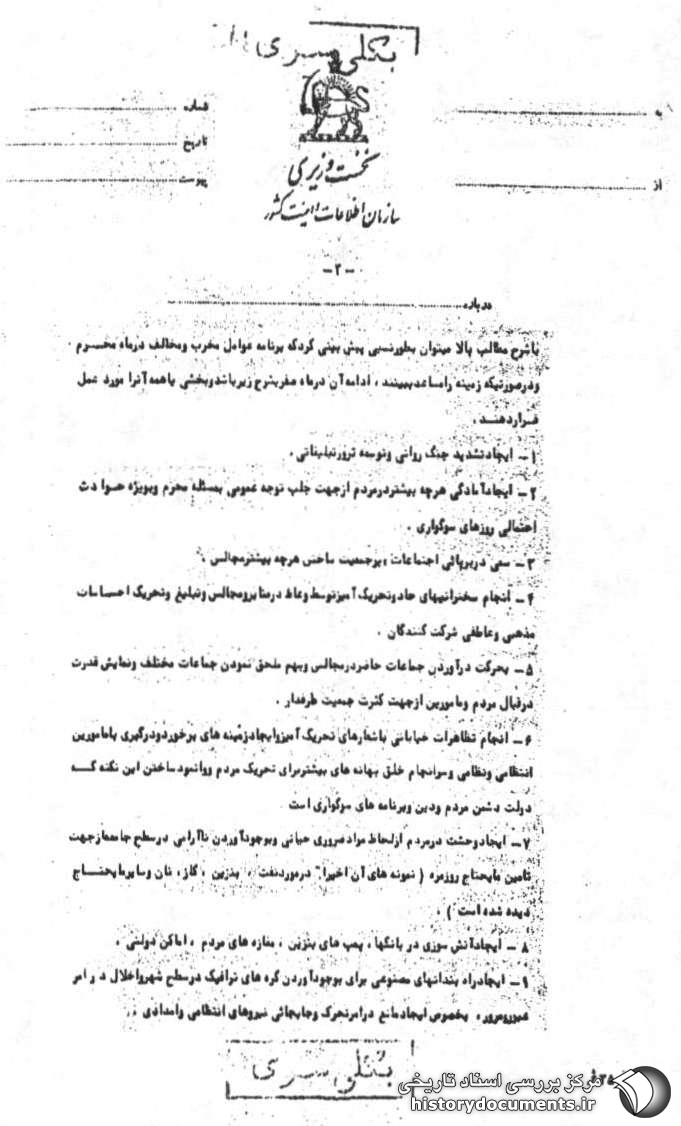 بکلی سری
شماره
تاریخ
پیوست
به
از
نخست وزیری
سازمان اطلاعات و امنیت کشور
-۳-
درباره
باشرح مطالب بالا میتوان بطورنسبی پیش بینی کردکه برنامه عوامل مخرب ومخالف درماه محسرم
ودرصورتیکه زمینه رامساعدببینند ، ادامه آن درماه صفربشرح زیرباشدوبخشی یاهمه آنرا مورد عمل
قراردهند .
۱- ایجادتشدید جنگ روانی وتوسعه ترورتبلیغاتی .
۲- ایجادآمادگی هرچه بیشتردرمردم ازجهت جلب توجه عمومی بمسئله محرم وبویژه حوادث
احتمالی روزهای سوگواری .
۳- سعی دربرپائی اجتماعات ،پرجمعیت ساختن هرچه بیشترمجالس .
۴- انجام سخنرانیهای حادوتحریک آمیزتوسط وعاظ درمنابرومجالس وتبلیغ وتحریک احساسات
مذهبی وعاطفی شرکت کنندگان .
۵- بحرکت درآوردن جماعات حاضردرمجالس وبهم ملحق نمودن جماعات مختلف ونمایش قدرت
درقبال مردم ومامورین ازجهت کثرت جمعیت طرفدار .
۶- انجام تظاهرات خیابانی باشعارهای تحریک آمیزوایجادزمینه های برخوردودرگیری بامامورین
انتظامی ونظامی وسرانجام خلق بهانه های بیشتربرای تحریک مردم ووانمودساختن این نکته کــه
دولت دشمن مردم ودین وبرنامه های سوگواری است
۷- ایجادوحشت درمردم ازلحاظ موادضروری حیاتی وبوجودآوردن ناآرامی درسطح جامعه ازجهت
تامین مایحتاج روزمره ( نمونه های آن اخیرا" درموردنفت ، بنزین ، گاز ، نان وسایرمایحتاج
دیده شده است ) .
۸ - ایجادآتش سوزی در بانکها ، پمپ های بنزین ، مغازه های مردم ، اماکن دولتی .
۹- ایجادراه بندانهای مصنوعی برای بوجودآوردن گره های ترافیک درسطح شهرواخلال در امر
عبورومرور، بخصوص ایجادمانع درامرتحرک وجابجائی نیروهای انتظامی وامدادی .
بکلی سری
مرکز بررسی اسناد تاریخی
historydocuments.ir